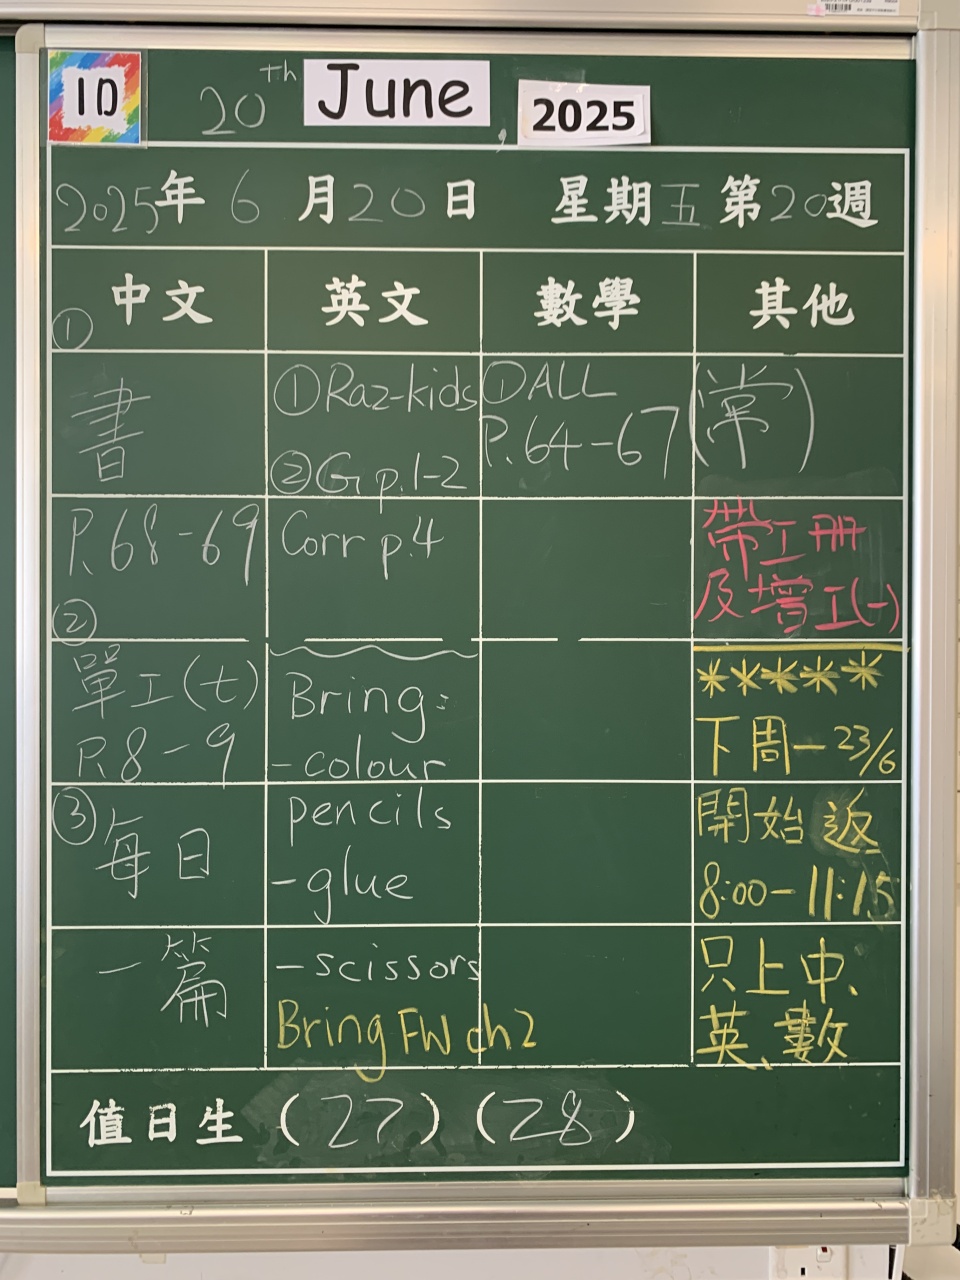 1D
20th June, 2025
2025年6月20日 星期五 第20週
中文
①
書
P.68-69
②
單工(七)
P.8-9
③
每日
一篇
英文
①Raz-kids
②G p.1-2
Corr p.4
Bring:
-colour
pencils
-glue
-scissors
Bring FW ch2
數學
①ALL
P.64-67
其他
(常)
帶工冊
及增工(一)
*****
下周一23/6
開始返
8:00-11:15
只上中、
英、數
值日生 (27) (28)